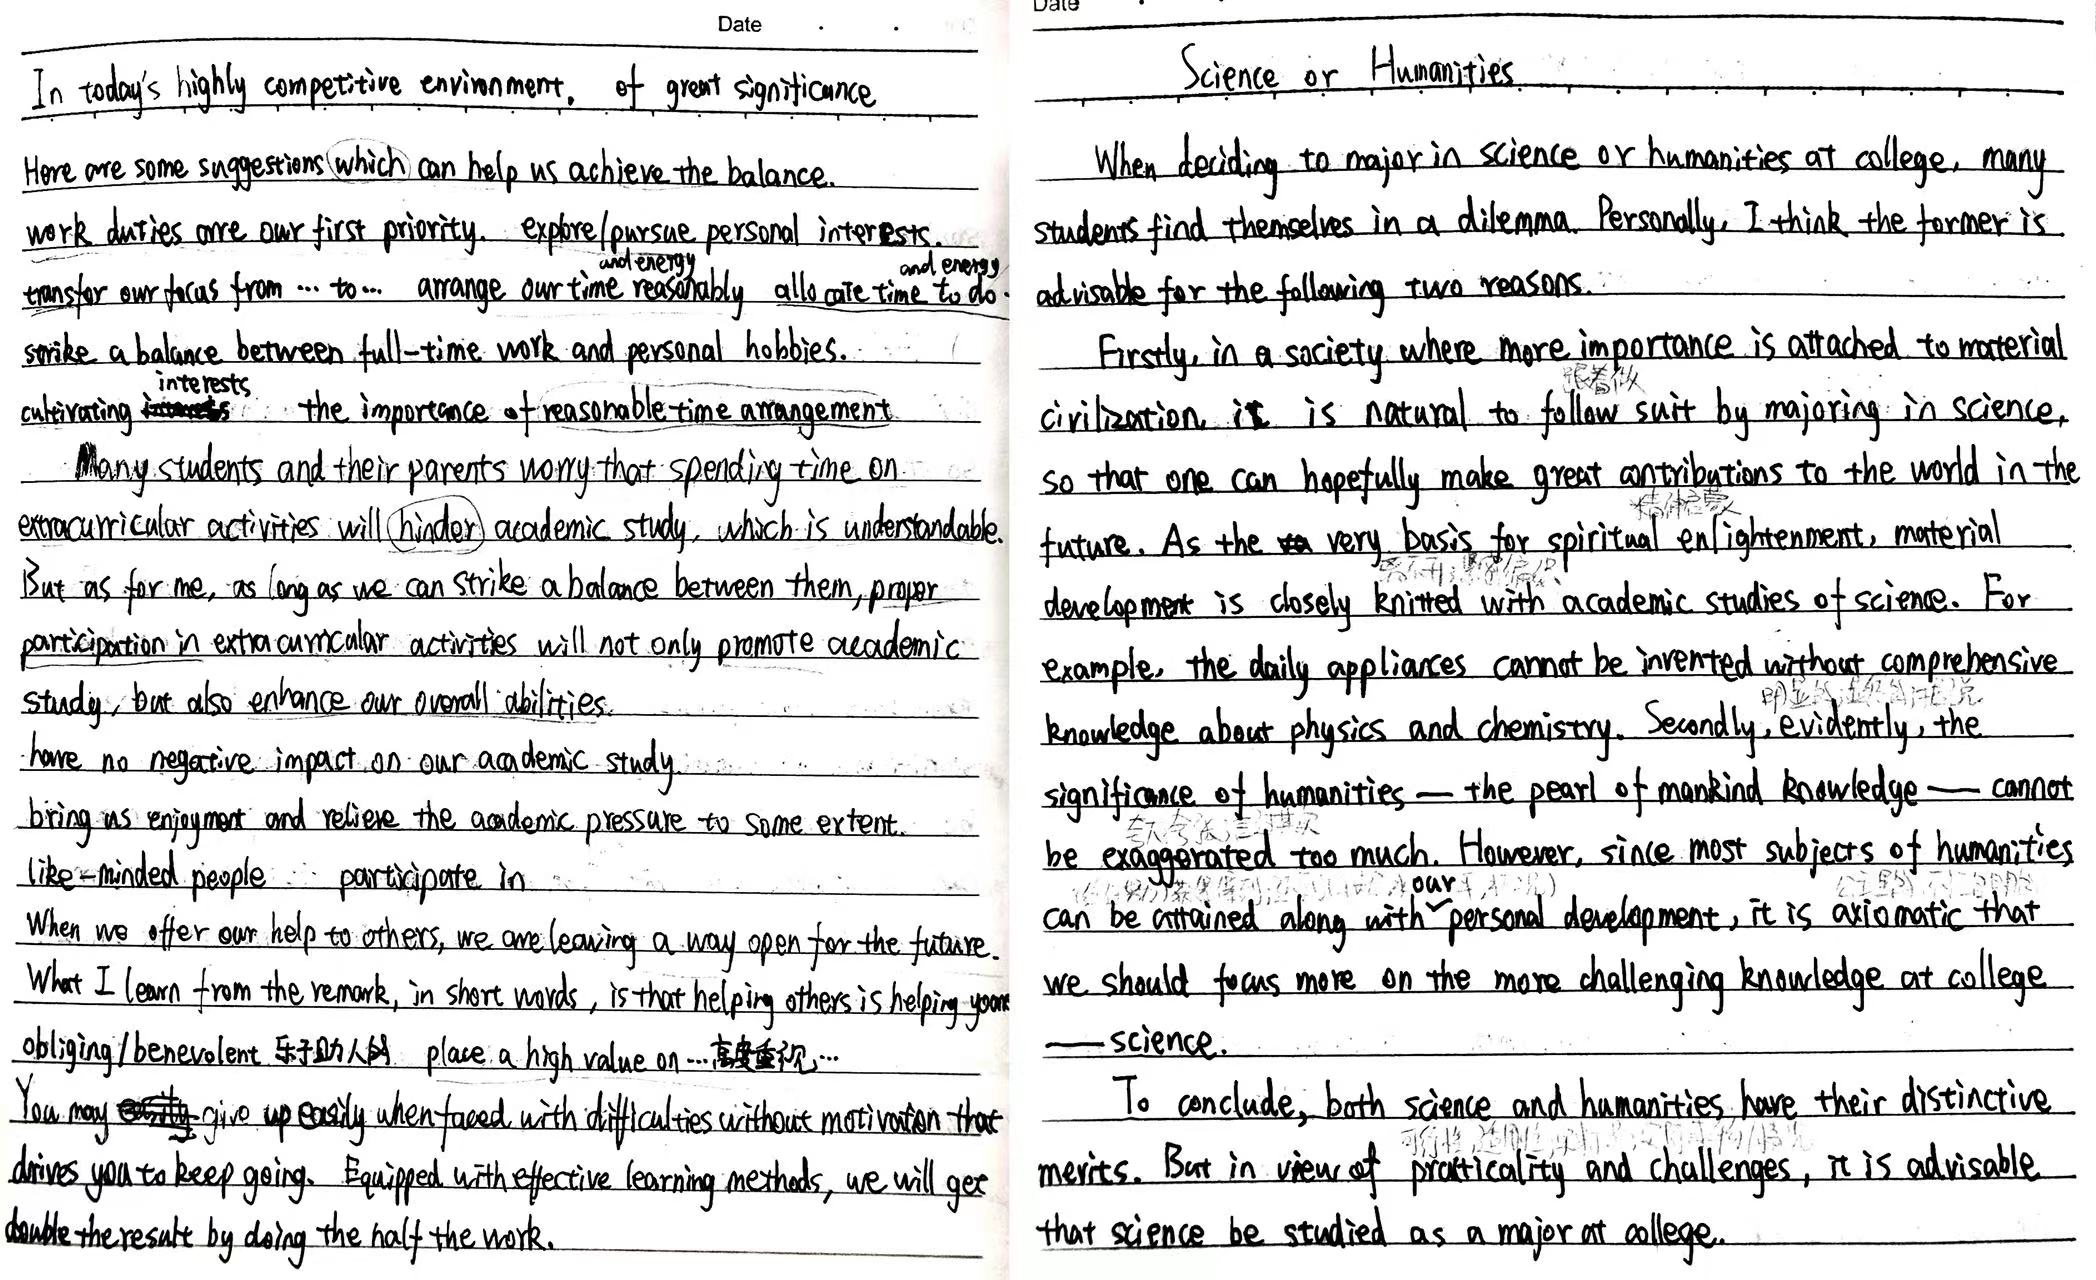 Date
In today's highly competitive environment, of great significance
Here are some suggestions which can help us achieve the balance.
work duties are our first priority. explore/pursue personal interests.
and energy and energy
transfer our focus from ... to... arrange our time reasonably allocate time to do.
strike a balance between full-time work and personal hobbies.
interests
cultivating the importance of reasonable time arrangement
Many students and their parents worry that spending time on
extracurricular activities will hinder academic study, which is understandable.
But as for me, as long as we can strike a balance between them, proper
participation in extracurricular activities will not only promote academic
study, but also enhance our overall abilities.
have no negative impact on our academic study.
bring us enjoyment and relieve the academic pressure to some extent.
like-minded people participate in
When we offer our help to others, we are leaving a way open for the future.
What I learn from the remark, in short words, is that helping others is helping
obliging/benevolent 乐于助人的 place a high value on ...高度重视...
You may give up easily when faced with difficulties without motivation that
drives you to keep going. Equipped with effective learning methods, we will get
double the result by doing the half the work.
Date
Science or Humanities
When deciding to major in science or humanities at college, many
students find themselves in a dilemma. Personally, I think the former is
advisable for the following two reasons.
Firstly, in a society where more importance is attached to material
跟着做
civilization, it is natural to follow suit by majoring in science,
so that one can hopefully make great contributions to the world in the
精神启蒙
future. As the very basis for spiritual enlightenment, material
development is closely knitted with academic studies of science. For
example, the daily appliances cannot be invented without comprehensive
knowledge about physics and chemistry. Secondly, evidently, the
significance of humanities — the pearl of mankind knowledge — cannot
be exaggerated too much. However, since most subjects of humanities
our
can be attained along with personal development, it is axiomatic that
we should focus more on the more challenging knowledge at college
— science.
To conclude, both science and humanities have their distinctive
merits. But in view of practicality and challenges, it is advisable
that science be studied as a major at college.